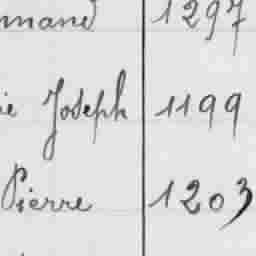 mand 1297
ie Joseph 1199
Pierre 1203